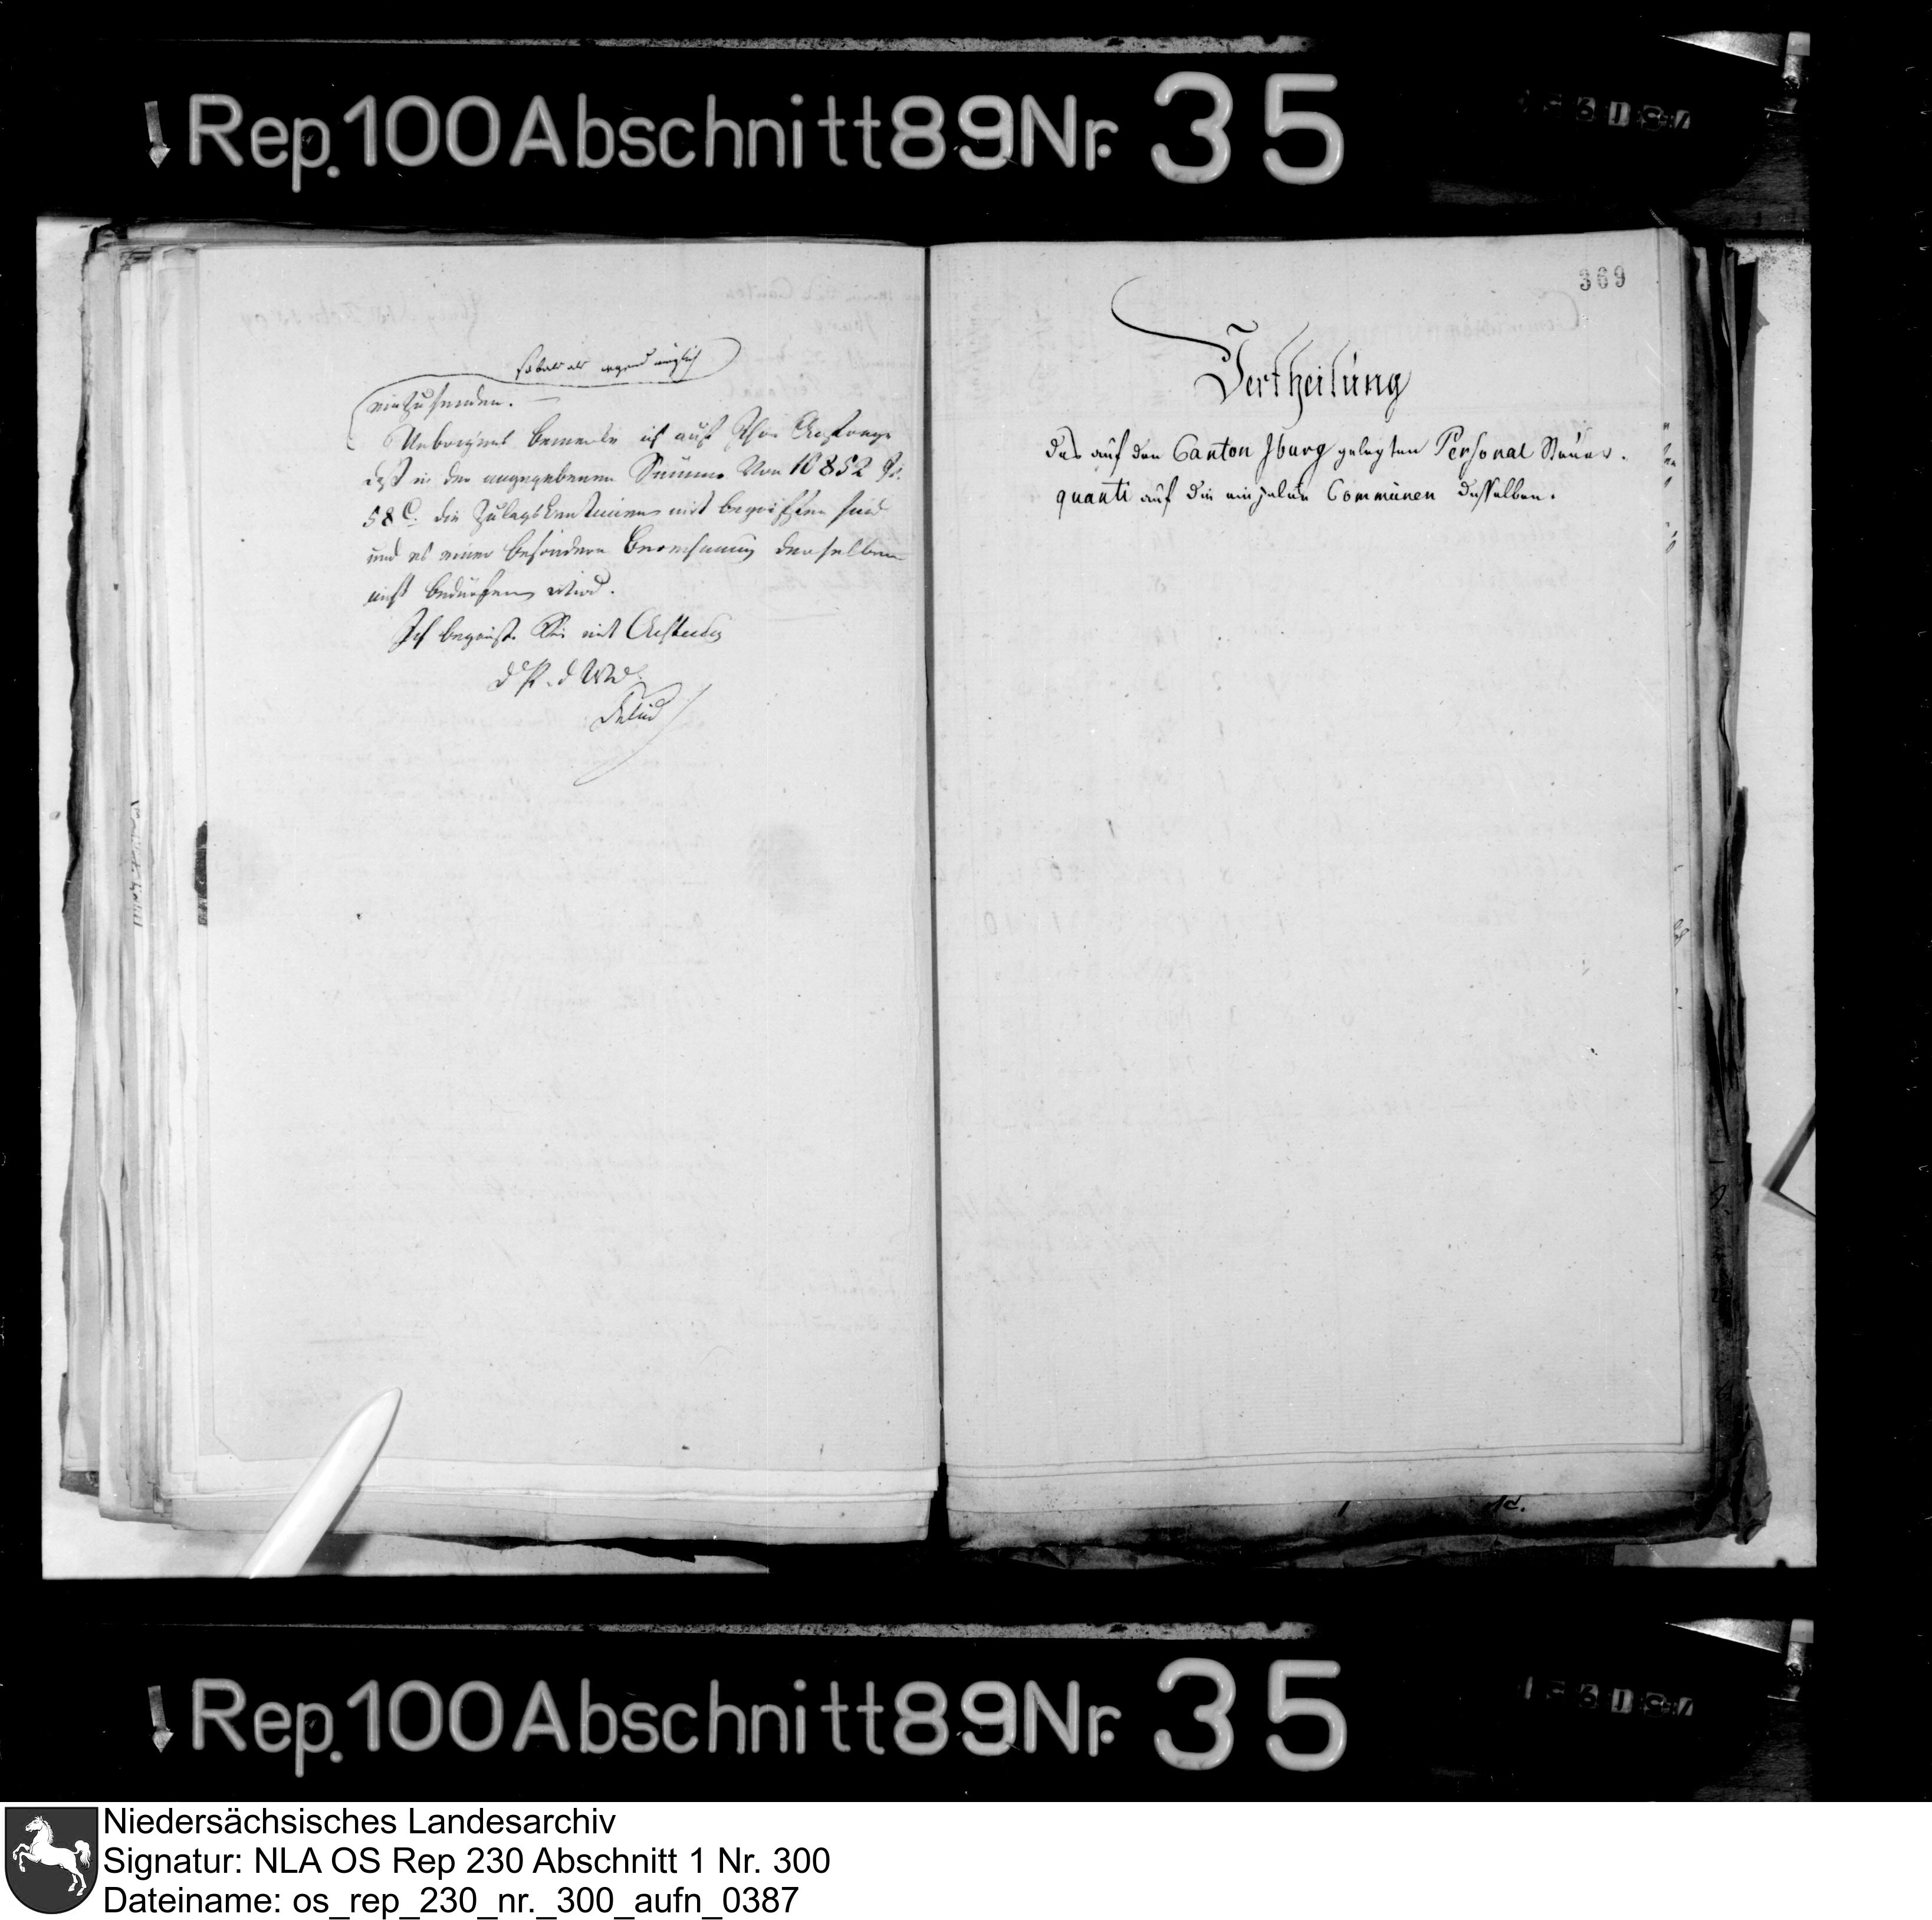 Rep. 100 Abschnitt 89 Nr. 35
sobald als irgend möglich
einzusenden.
Uebrigens bemerke ich auf Ihre Anfrage
daß in der angegebenen Summe Von 10852 fr.
58 C. die Zulagscentimen mit begriffen sind
und es einer besondern Berechnung derselben
nicht bedürfen wird.
Ich begrüße Sie mit Achtung
369
Vertheilung
des auf den Canton Iburg gelegten Personal Steuer-
quanti auf die einzelne Communen desselben.
Rep. 100 Abschnitt 89 Nr. 35
Niedersächsisches Landesarchiv
Signatur: NLA OS Rep 230 Abschnitt 1 Nr. 300
Dateiname: os_rep_230_nr._300_aufn_0387